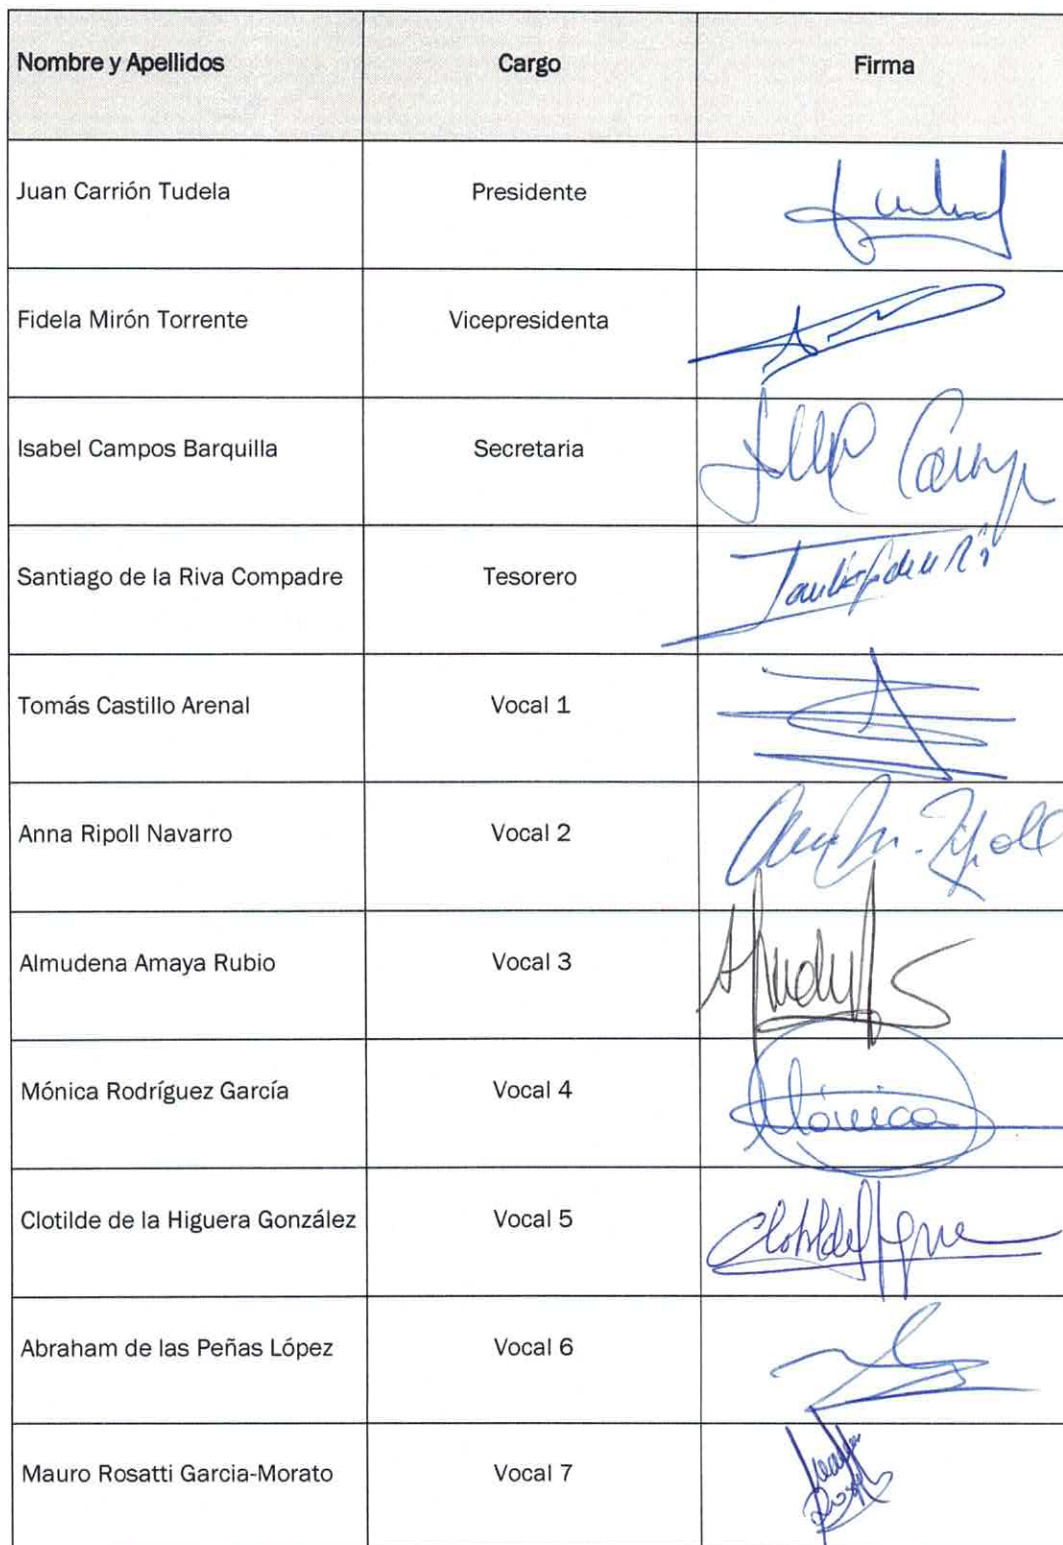 Nombre y Apellidos Cargo Firma
Juan Carrión Tudela Presidente
Fidela Mirón Torrente Vicepresidenta
Isabel Campos Barquilla Secretaria
Santiago de la Riva Compadre Tesorero
Tomás Castillo Arenal Vocal 1
Anna Ripoll Navarro Vocal 2
Almudena Amaya Rubio Vocal 3
Mónica Rodríguez García Vocal 4 Mónica
Clotilde de la Higuera González Vocal 5
Abraham de las Peñas López Vocal 6
Mauro Rosatti Garcia-Morato Vocal 7